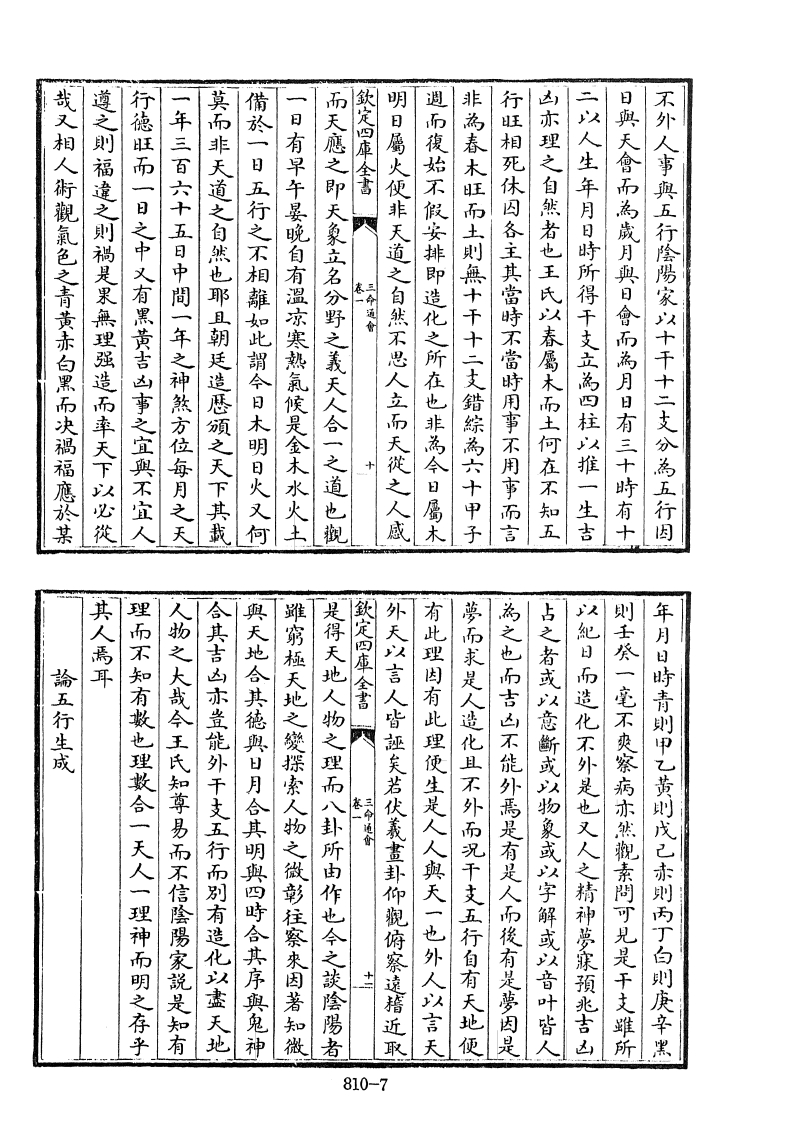 不外人事與五行陰陽家以十干十二支分為五行因
日與天會而為歲月與日會而為月日有三十時有十
二以人生年月日時所得干支立為四柱以推一生吉
凶亦理之自然者也王氏以春屬木而土何在不知五
行旺相死休囚各主其當時不當時用事不用事而言
非為春木旺而土則無十干十二支錯綜為六十甲子
週而復始不假安排即造化之所在也非為今日屬木
明日屬火便非天道之自然不思人立而天從之人感
欽定四庫全書
三命通會
卷一
十
而天應之即天象立名分野之義天人合一之道也觀
一日有早午晏晚自有溫凉寒熱氣候是金木水火土
備於一日五行之不相離如此謂今日木明日火又何
莫而非天道之自然也耶且朝廷造厯頒之天下其載
一年三百六十五日中間一年之神煞方位每月之天
行德旺而一日之中又有黑黃吉凶事之宜與不宜人
遵之則福違之則禍是果無理强造而率天下以必從
哉又相人術觀氣色之青黃赤白黑而决禍福應於某
年月日時青則甲乙黃則戊己赤則丙丁白則庚辛黑
則壬癸一毫不爽察病亦然觀素問可見是干支雖所
以紀日而造化不外是也又人之精神夢寐預兆吉凶
占之者或以意斷或以物象或以字解或以音叶皆人
為之也而吉凶不能外焉是有是人而後有是夢因是
夢而求是人造化且不外而況干支五行自有天地便
有此理因有此理便生是人人與天一也外人以言天
外天以言人皆誣矣若伏羲畫卦仰觀俯察遠稽近取
欽定四庫全書
三命通會
卷一
十二
是得天地人物之理而八卦所由作也今之談陰陽者
雖窮極天地之變探索人物之微彰往察來因著知微
與天地合其德與日月合其明與四時合其序與鬼神
合其吉凶亦豈能外干支五行而別有造化以盡天地
人物之大哉今王氏知尊易而不信陰陽家說是知有
理而不知有數也理數合一天人一理神而明之存乎
其人焉耳
論五行生成
810-7